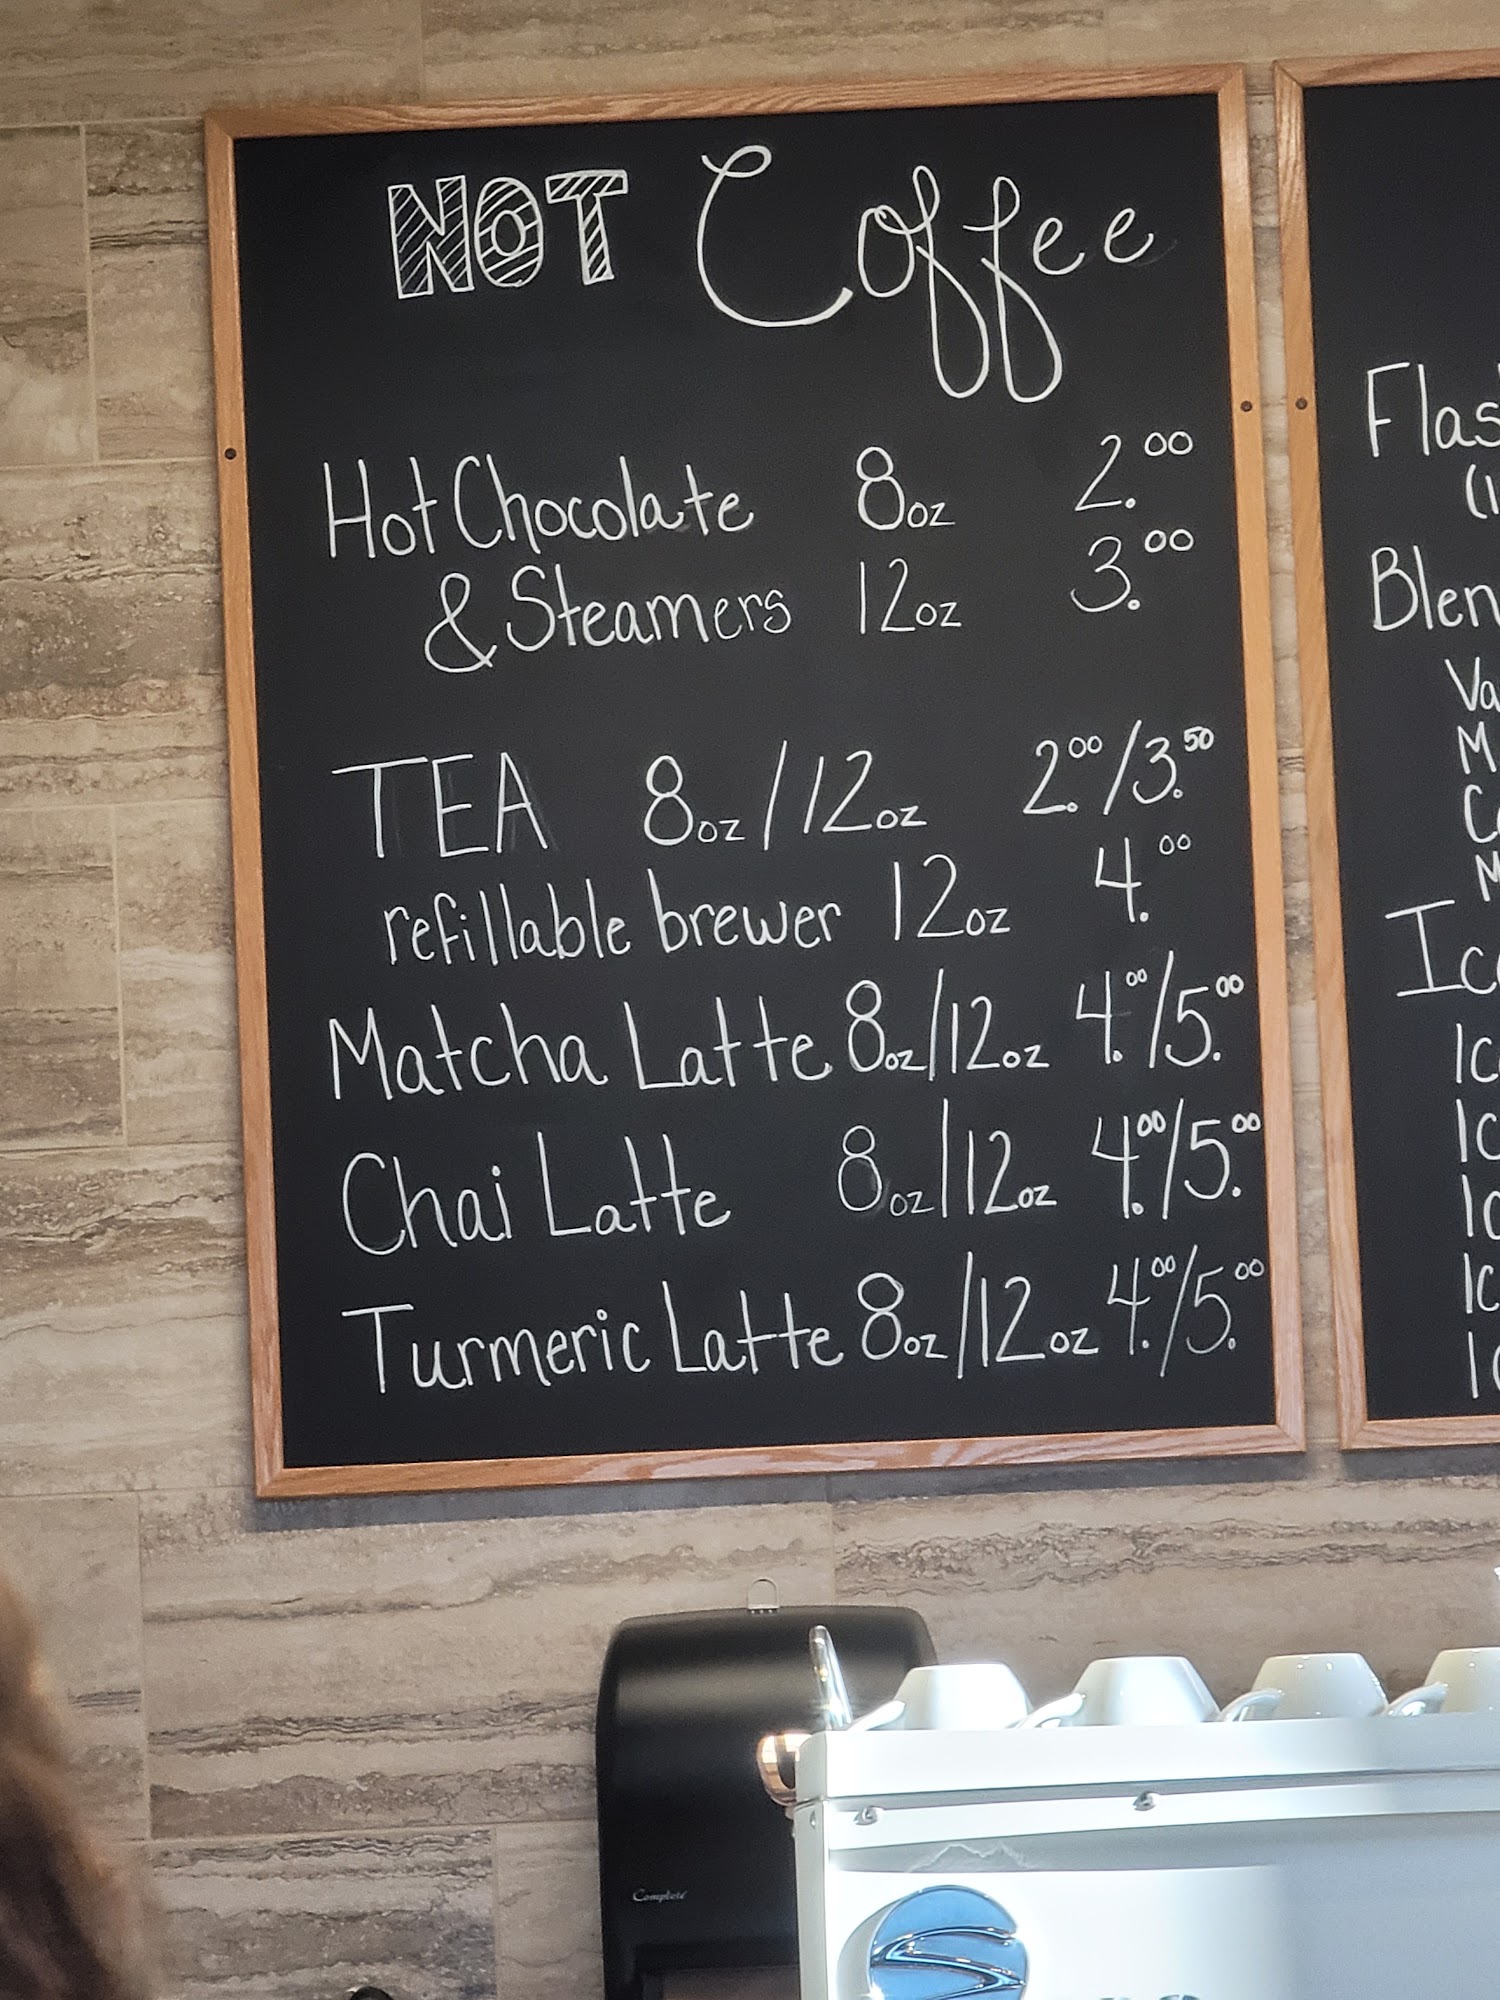 NOT Coffee
Hot Chocolate 8oz 2.00
& Steamers 12oz 3.00
TEA 8oz/12oz 2.00/3.50
refillable brewer 12oz 4.00
Matcha Latte 8oz/12oz 4.00/5.00
Chai Latte 8oz/12oz 4.00/5.00
Turmeric Latte 8oz/12oz 4.00/5.00
Flas
(1
Blen
Va
M
Co
M
Ice
Ice
Ic
Ic
Ic
Complete